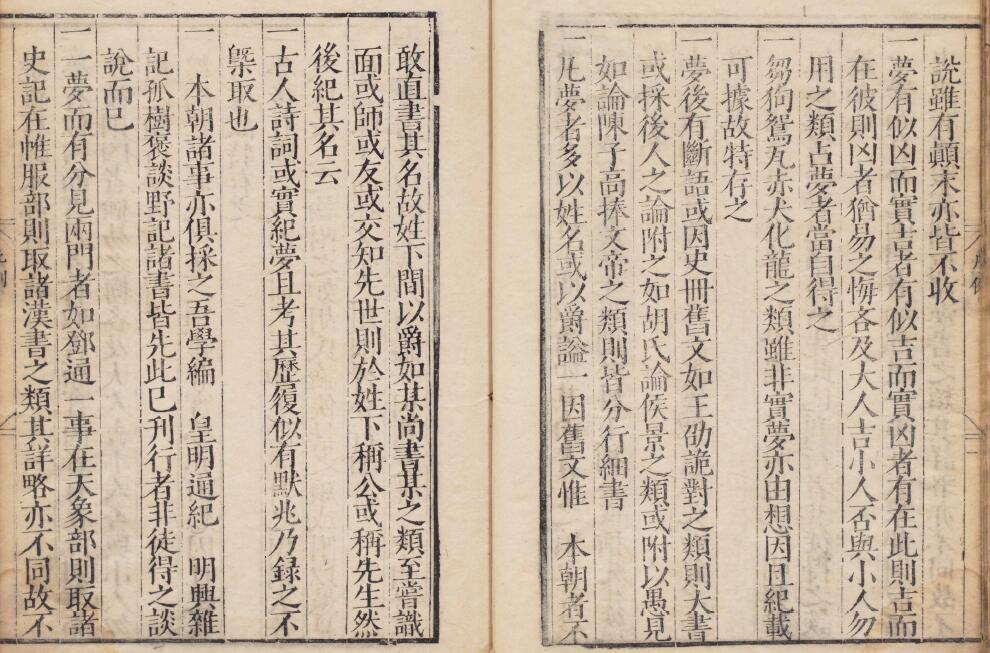 說雖有顛末亦皆不收
一夢有似凶而實吉者有似吉而實凶者有在此則吉而
在彼則凶者猶易之悔吝及大人吉小人否與小人勿
用之類占夢者當自得之
一芻狗鴛瓦赤犬化龍之類雖非實夢亦由想因且紀載
可據故特存之
一夢後有斷語或因史冊舊文如王劭詭對之類則大書
或採後人之論附之如胡氏論侯景之類或附以愚見
如論陳子高捧文帝之類則皆分行細書
一凡夢者多以姓名或以爵謚一因舊文惟 本朝者不
敢直書其名故姓下間以爵如某尚書某之類至嘗識
面或師或友或交知先世則於姓下稱公或稱先生然
後紀其名云
一古人詩詞或實紀夢且考其歷履似有默兆乃録之不
槩取也
一 本朝諸事亦俱採之吾學編 皇明通紀 明興雜
記孤樹褒談野記諸書皆先此已刊行者非徒得之談
說而已
一一夢而有分見兩門者如鄧通一事在天象部則取諸
史記在帷服部則取諸漢書之類其詳略亦不同故不